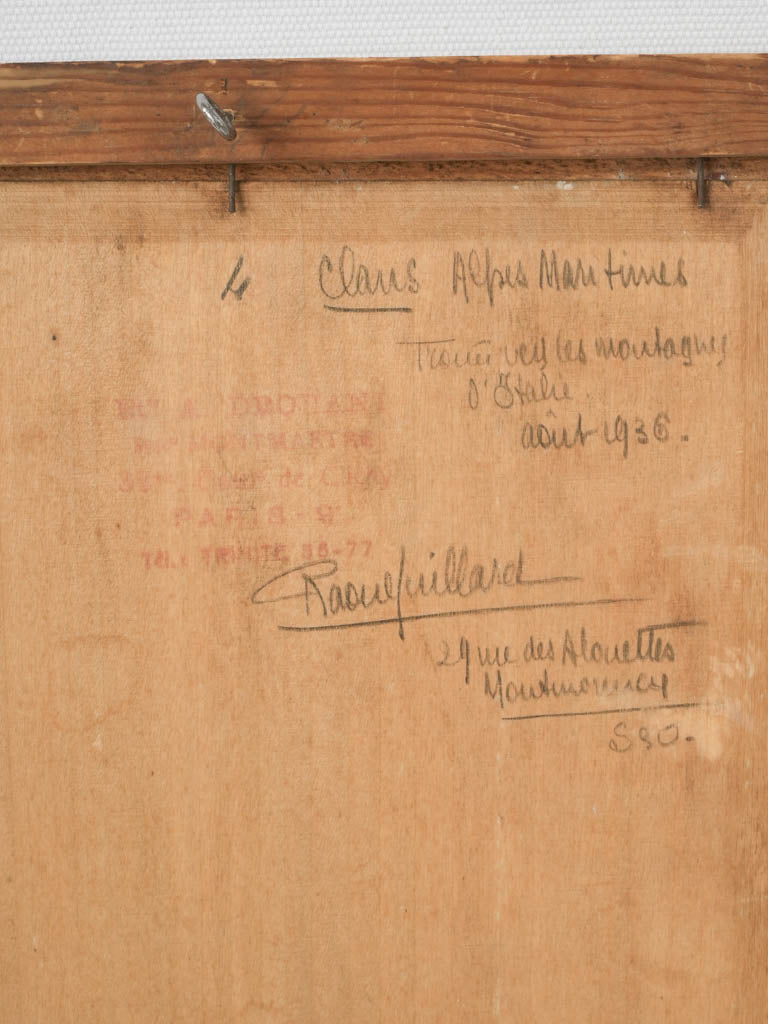 4 Clans Alpes Maritimes
vers les montagnes
d'Italie
août 1936.
DROUANT
MONTMARTRE
de Clichy
PARIS - 9e
Tél.: TRINITÉ 36-77
Raoul Guillard
29 rue des Alouettes
Montmorency
S&O.